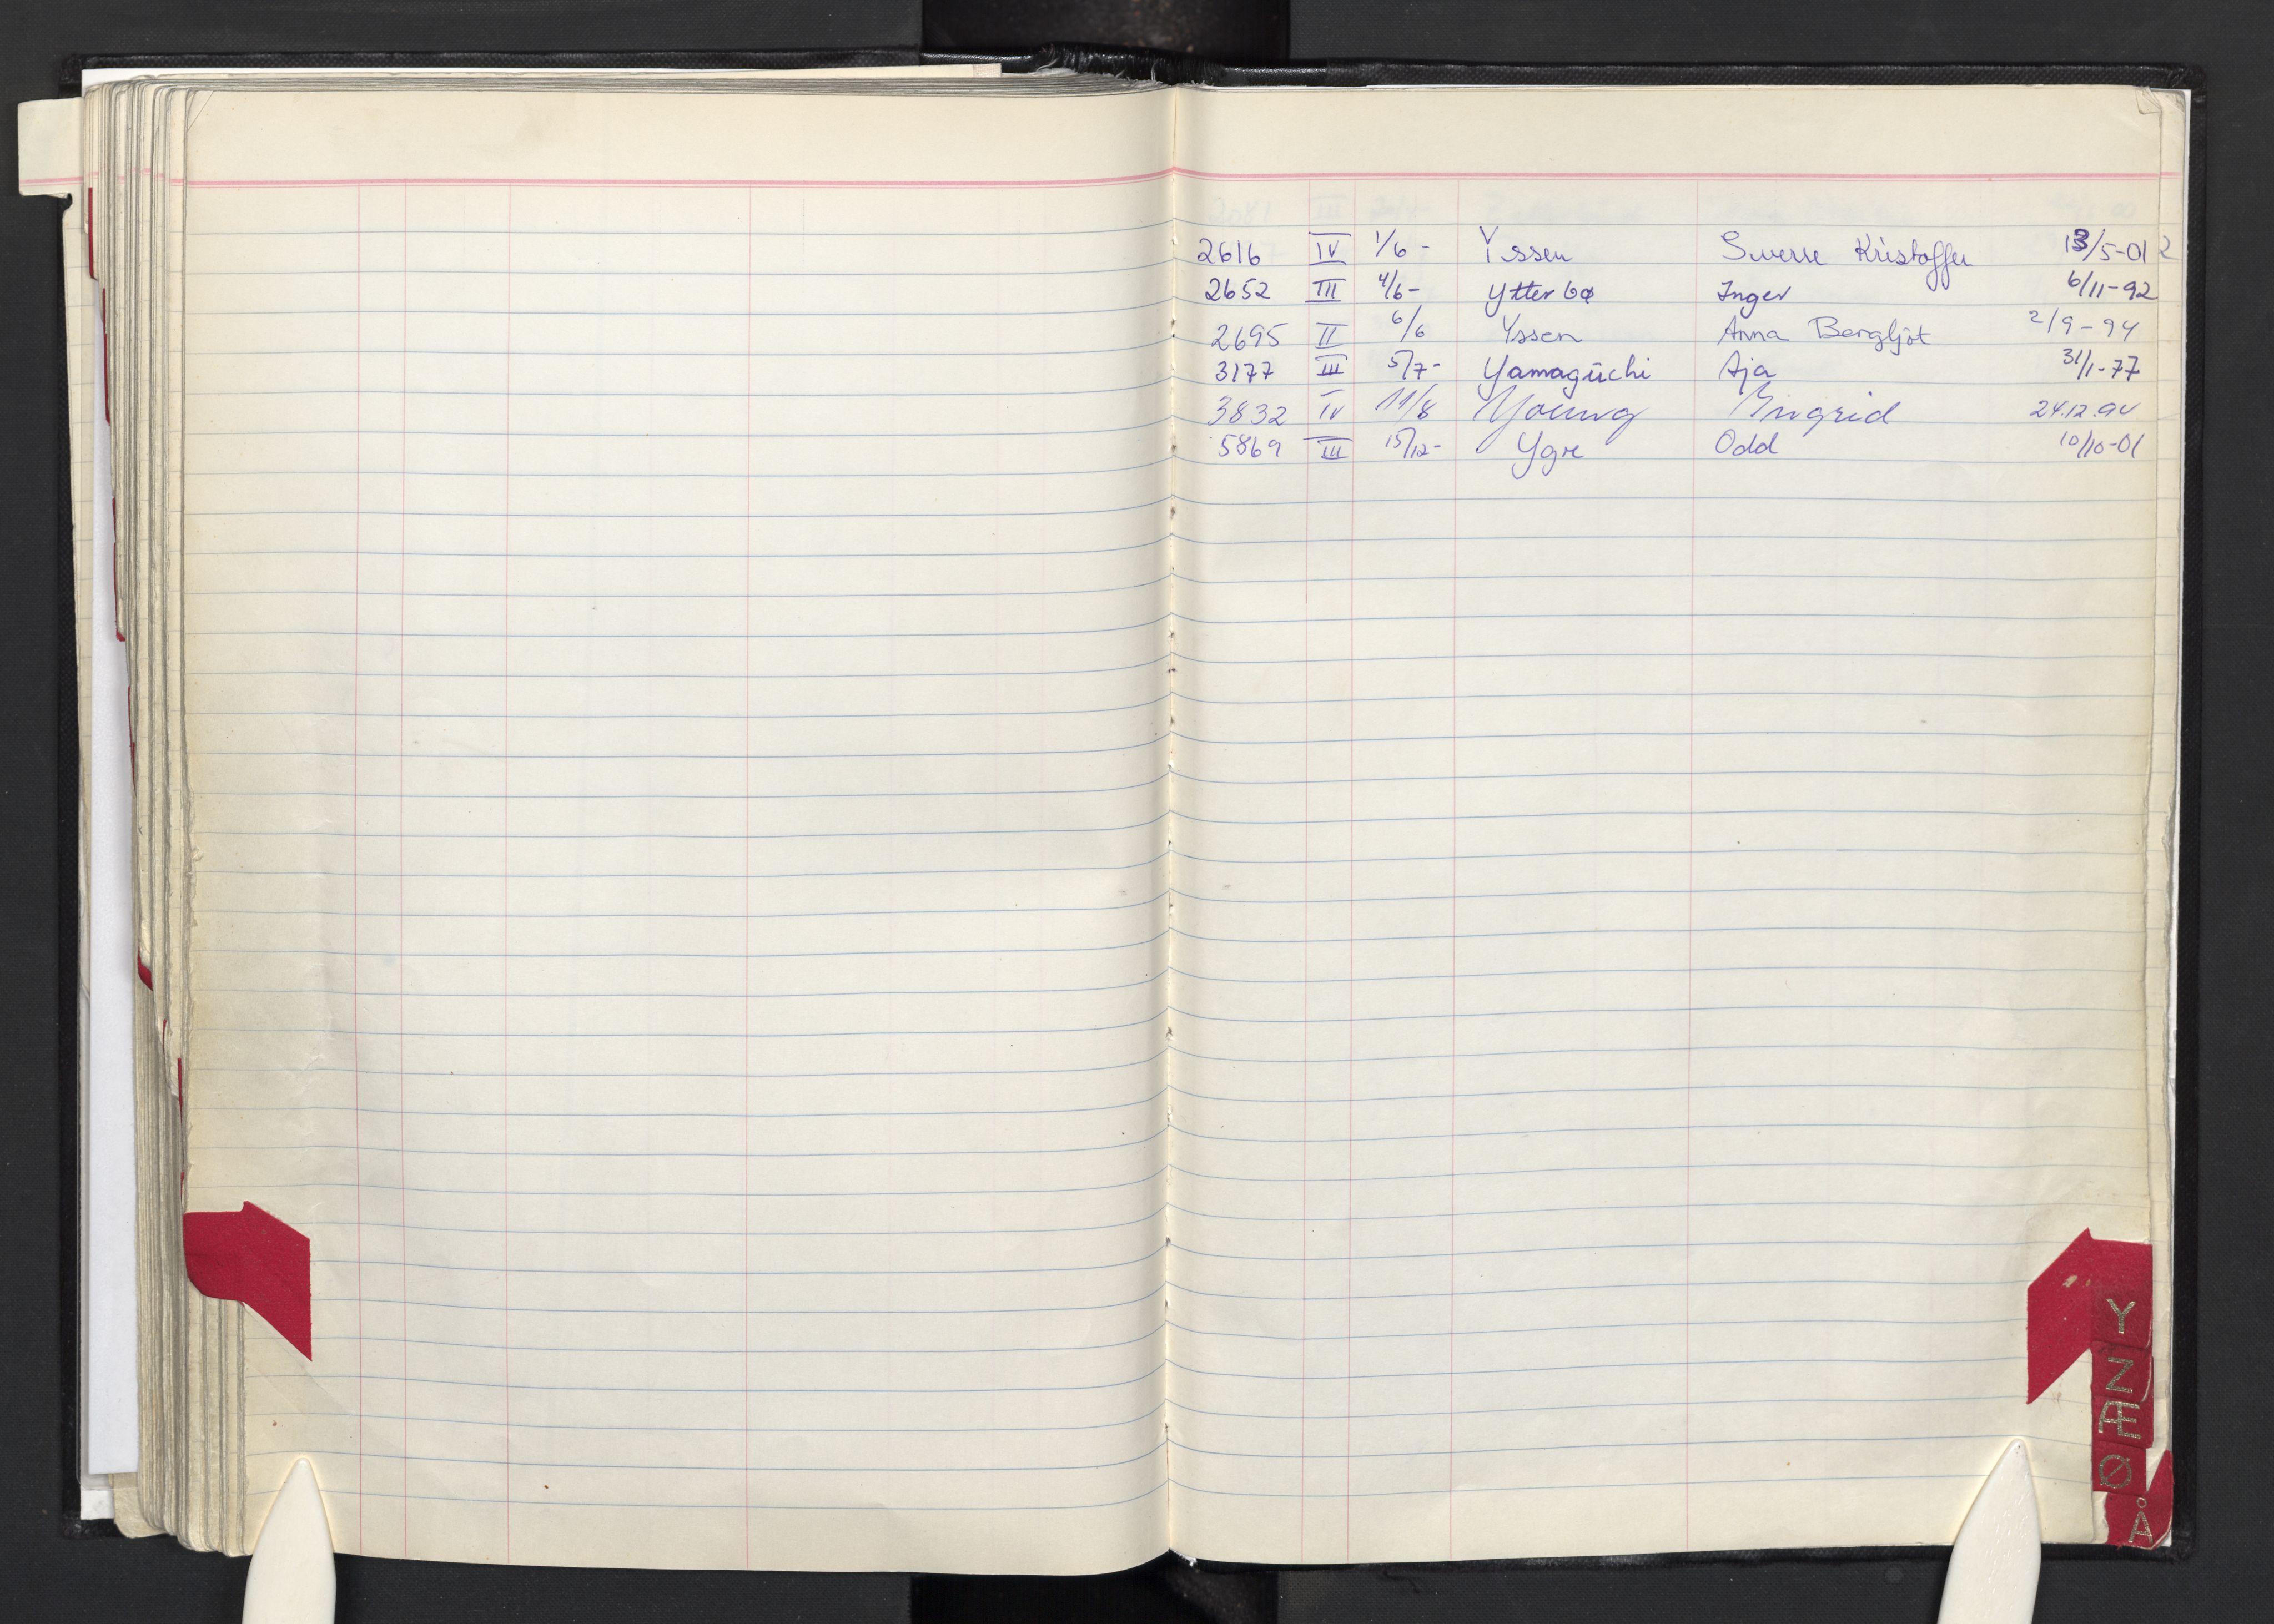 2616 IV 1/6 - Yssen Sverre Kristoffer 13/5-01
2652 III 4/6- Ytterbø Inger 6/11-92
2695 II 6/6 Yssen Anna Bergljot 2/9-94
3177 III 5/7- Yamagūchi Aja 31/1-77
3832 IV 11/8 Young Ingrid 24.12.94
5869 III 15/12- Ygre Odd 10/10-01
Y
Z
Æ
Ø
Å